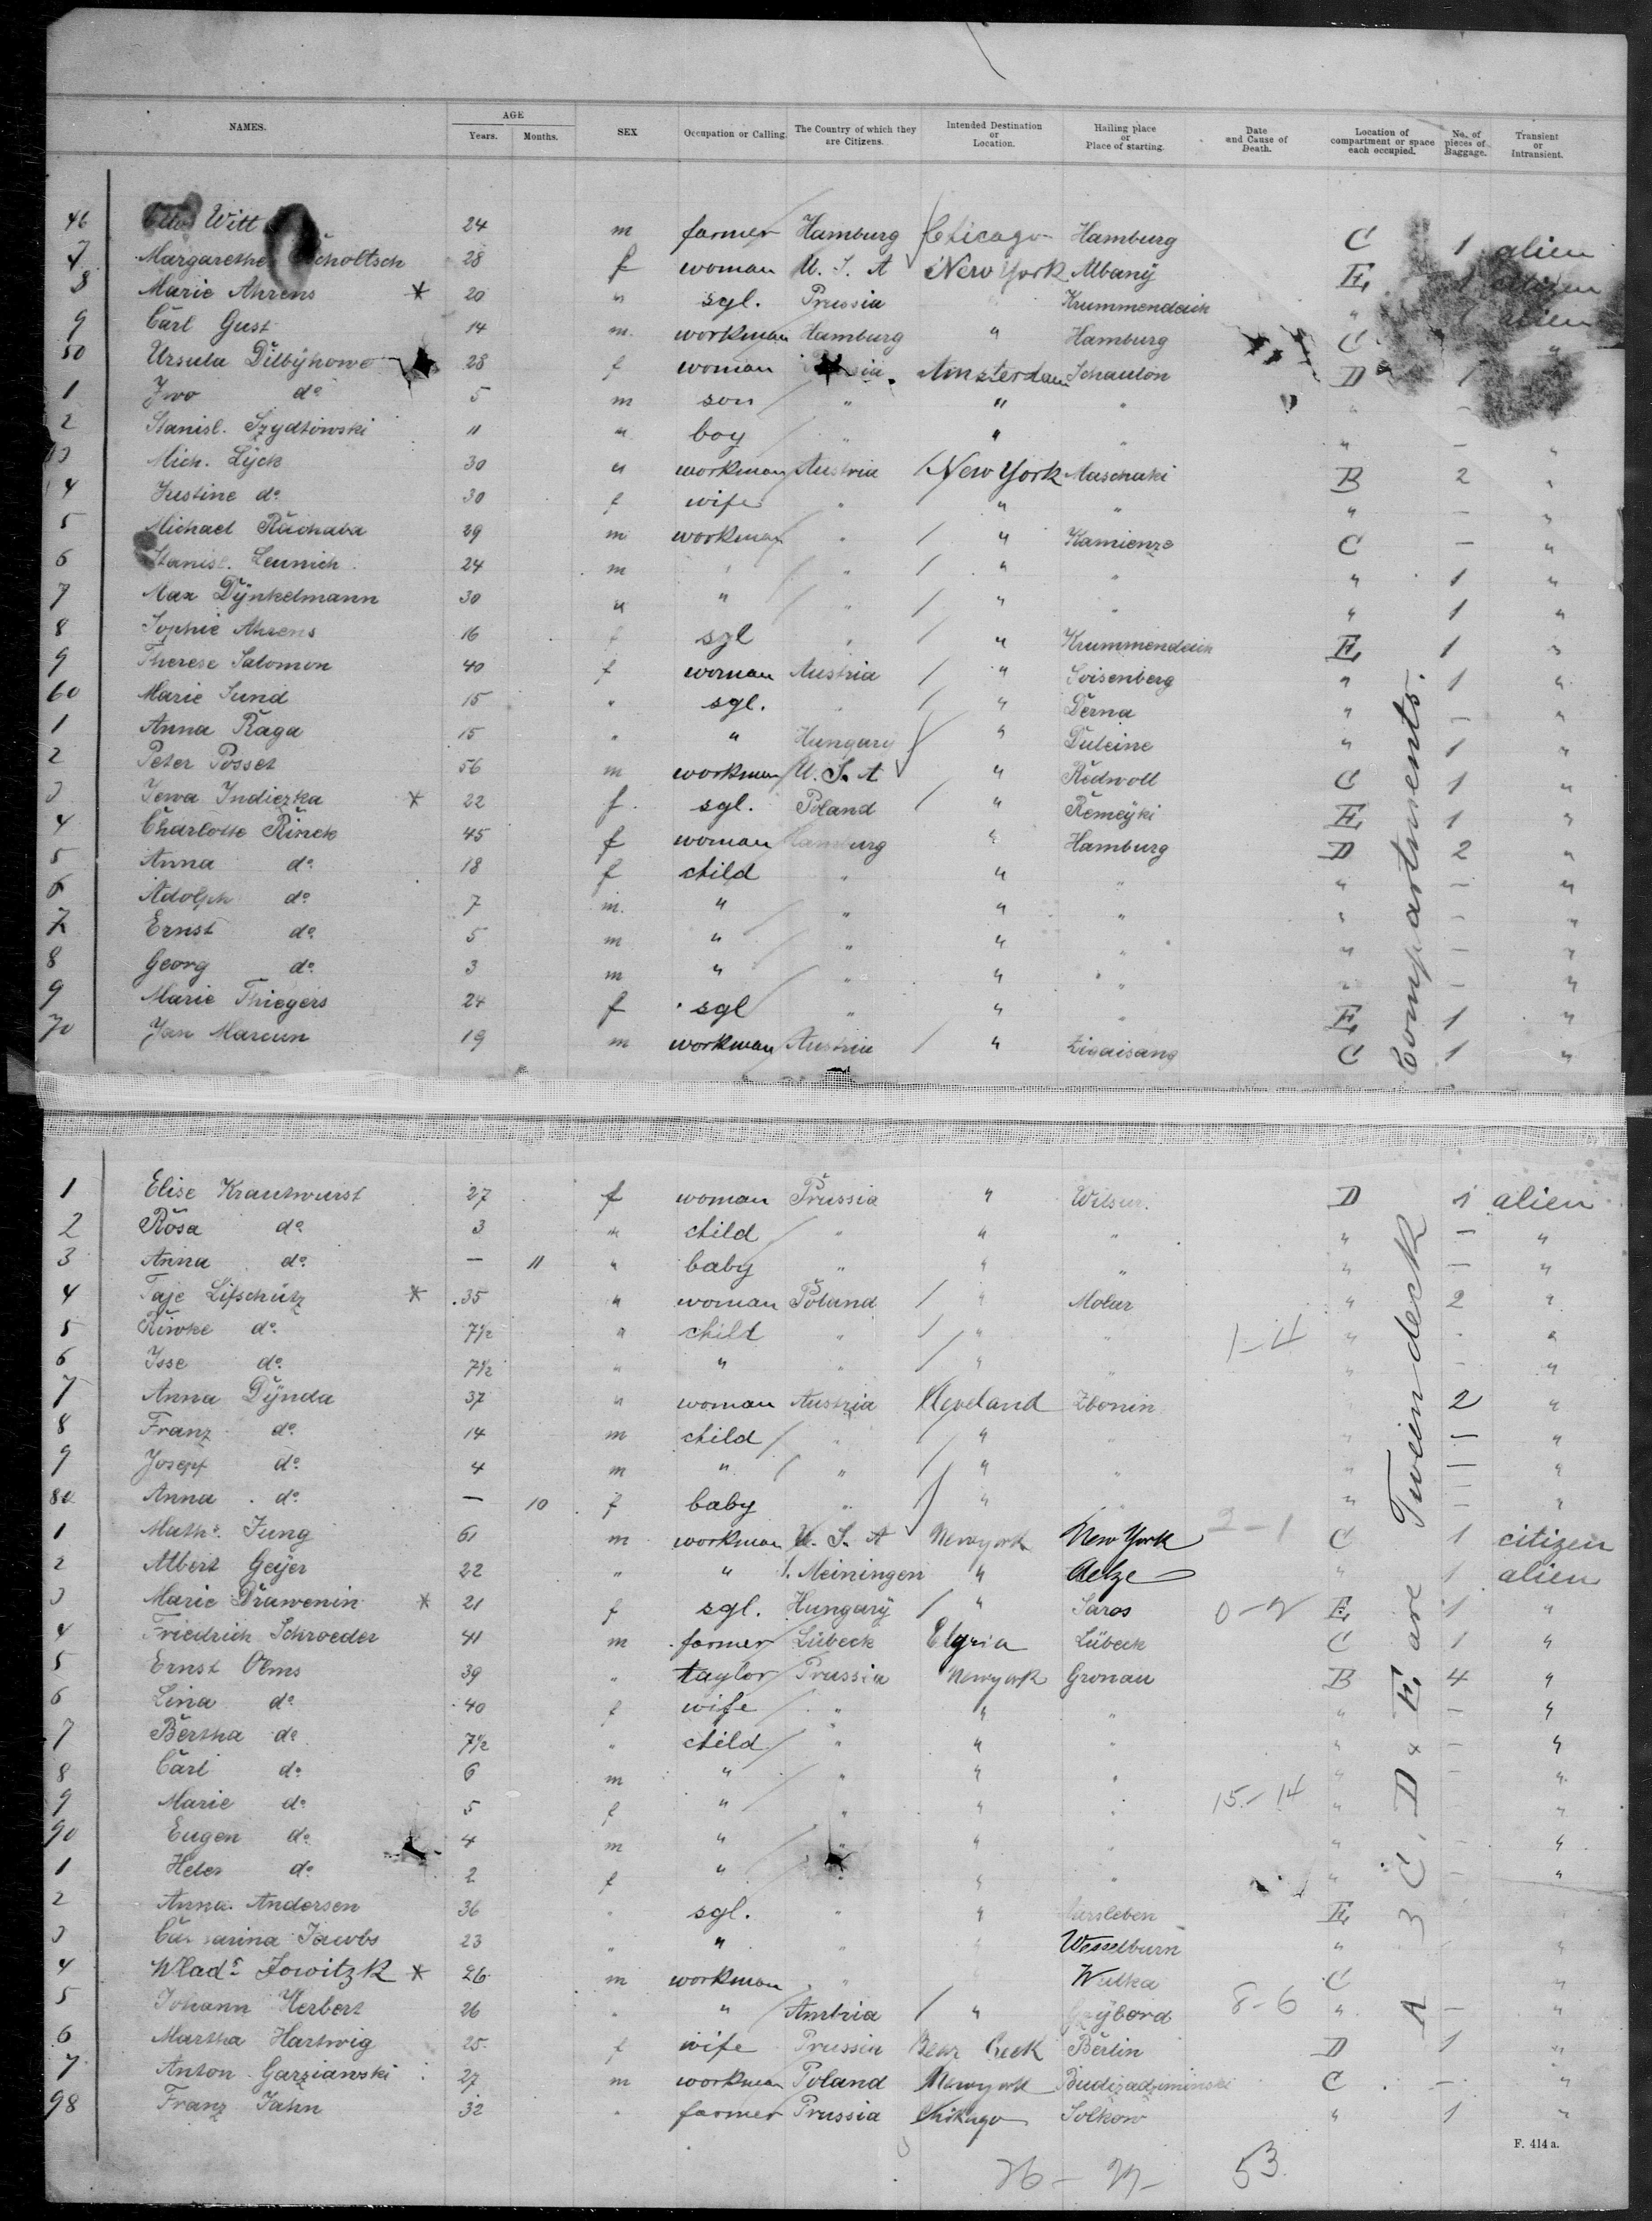 NAMES. AGE Years. Months. SEX Occupation or Calling. The Country of which they are Citizens. Intended Destination or Location. Hailing place or Place of starting. Date and Cause of Death. Location of compartment or space each occupied. No. of pieces of Baggage. Transient or Intransient.
46 Otto Witt 24 m farmer Hamburg Chicago Hamburg C 1 alien
7 Margarethe 28 f woman U. S. A New York Albany E
8 Marie Ahrens * 20 " sgl. Prussia " Krummendeich " alien
9 Carl Gust 14 m. workman Hamburg " Hamburg C "
50 Ursula Dilbÿhowo 28 f woman Amsterdam Schaulon D 1
1 Iwo do 5 m son " " " " -
2 Stanisl. Szydtowski 11 " boy " " " " - "
3 Mich. Lÿck 30 " workman Austria New York Maschaki B 2 "
4 Justine do 30 f wife " " " " - "
5 Michael Rachaba 29 m workman " " Kamienze C - "
6 Stanisl. Leunich 24 m " " " " " 1 "
7 Max Dÿnkelmann 30 " " " " " " 1 "
8 Sophie Ahrens 16 f sgl " " Krummendeich E 1 "
9 Therese Salomon 40 f woman Austria " Seisenberg " 1 "
60 Marie Sund 15 " sgl. " " Derna " - "
1 Anna Raga 15 " " Hungary " Duleine " 1 "
2 Peter Posset 56 m workman U. S. A " Redwoll C 1 "
3 Jewa Indiezka * 22 f. sgl. Poland " Remeÿki E 1 "
4 Charlotte Rinck 45 f woman Hamburg " Hamburg D 2 "
5 Anna do 18 f child " " " " - "
6 Adolph do 7 m. " " " " " - "
7 Ernst do 5 m " " " " " - "
8 Georg do 3 m " " " " " - "
9 Marie Thiegers 24 f sgl " " " E 1 "
70 Jan Marcun 19 m workman Austria " Zigaisang C 1 "
1 Elise Krautwurst 27 f woman Prussia " D 1 alien
2 Rosa do 3 " child " " " " - "
3 Anna do - 11 " baby " " " " - "
4 Taje Lifschütz * 35 " woman Poland " Molar " 2 "
5 Riwke do 7½ " child " " " 1-4 " - "
6 Isse do 7½ " " " " " " - "
7 Anna Dÿnda 37 " woman Austria Cleveland Zbonin 2 "
8 Franz do 14 m child " " " " - "
9 Josef do 4 m " " " " " - "
80 Anna do - 10 f baby " " " " - "
1 Maths. Jung 61 m workman U. S. A Newyork New York 2-1 C 1 citizen
2 Albert Geÿer 22 " " S. Meiningen " Aelze " 1 alien
3 Marie Drawenin * 21 f sgl. Hungarÿ " Saros 0-2 E 1 "
4 Friedrich Schroeder 41 m farmer Lübeck Elyria Lübeck C 1 "
5 Ernst Olms 39 " taylor Prussia Newyork Gronau B 4 "
6 Lina do 40 f wife " " " " - "
7 Bertha do 7½ " child " " " " - "
8 Carl do 6 m " " " " " - "
9 Marie do 5 f " " " " 15-14 " - "
90 Eugen do 4 m " " " " " - "
1 Helen do 2 f " " " " " - "
2 Anna Andersen 36 " sgl. " " E
3 Jacobs 23 " " " " Wesselburn " "
4 Wladr. Jowitzk * 26 m workman " Wulka C "
5 Johann Herbert 26 " " Austria " 8-6 " - "
6 Martha Hartwig 25 f wife Prussia Bear Creek Berlin D 1 "
7 Anton Garzianski 27 m workman Poland Newyork Budizadziminski C - "
98 Franz Jahn 32 " farmer Prussia Chikago Solkow " 1 "
A B C, D & E are Tweendeck Compartments.
F. 414 a.
53